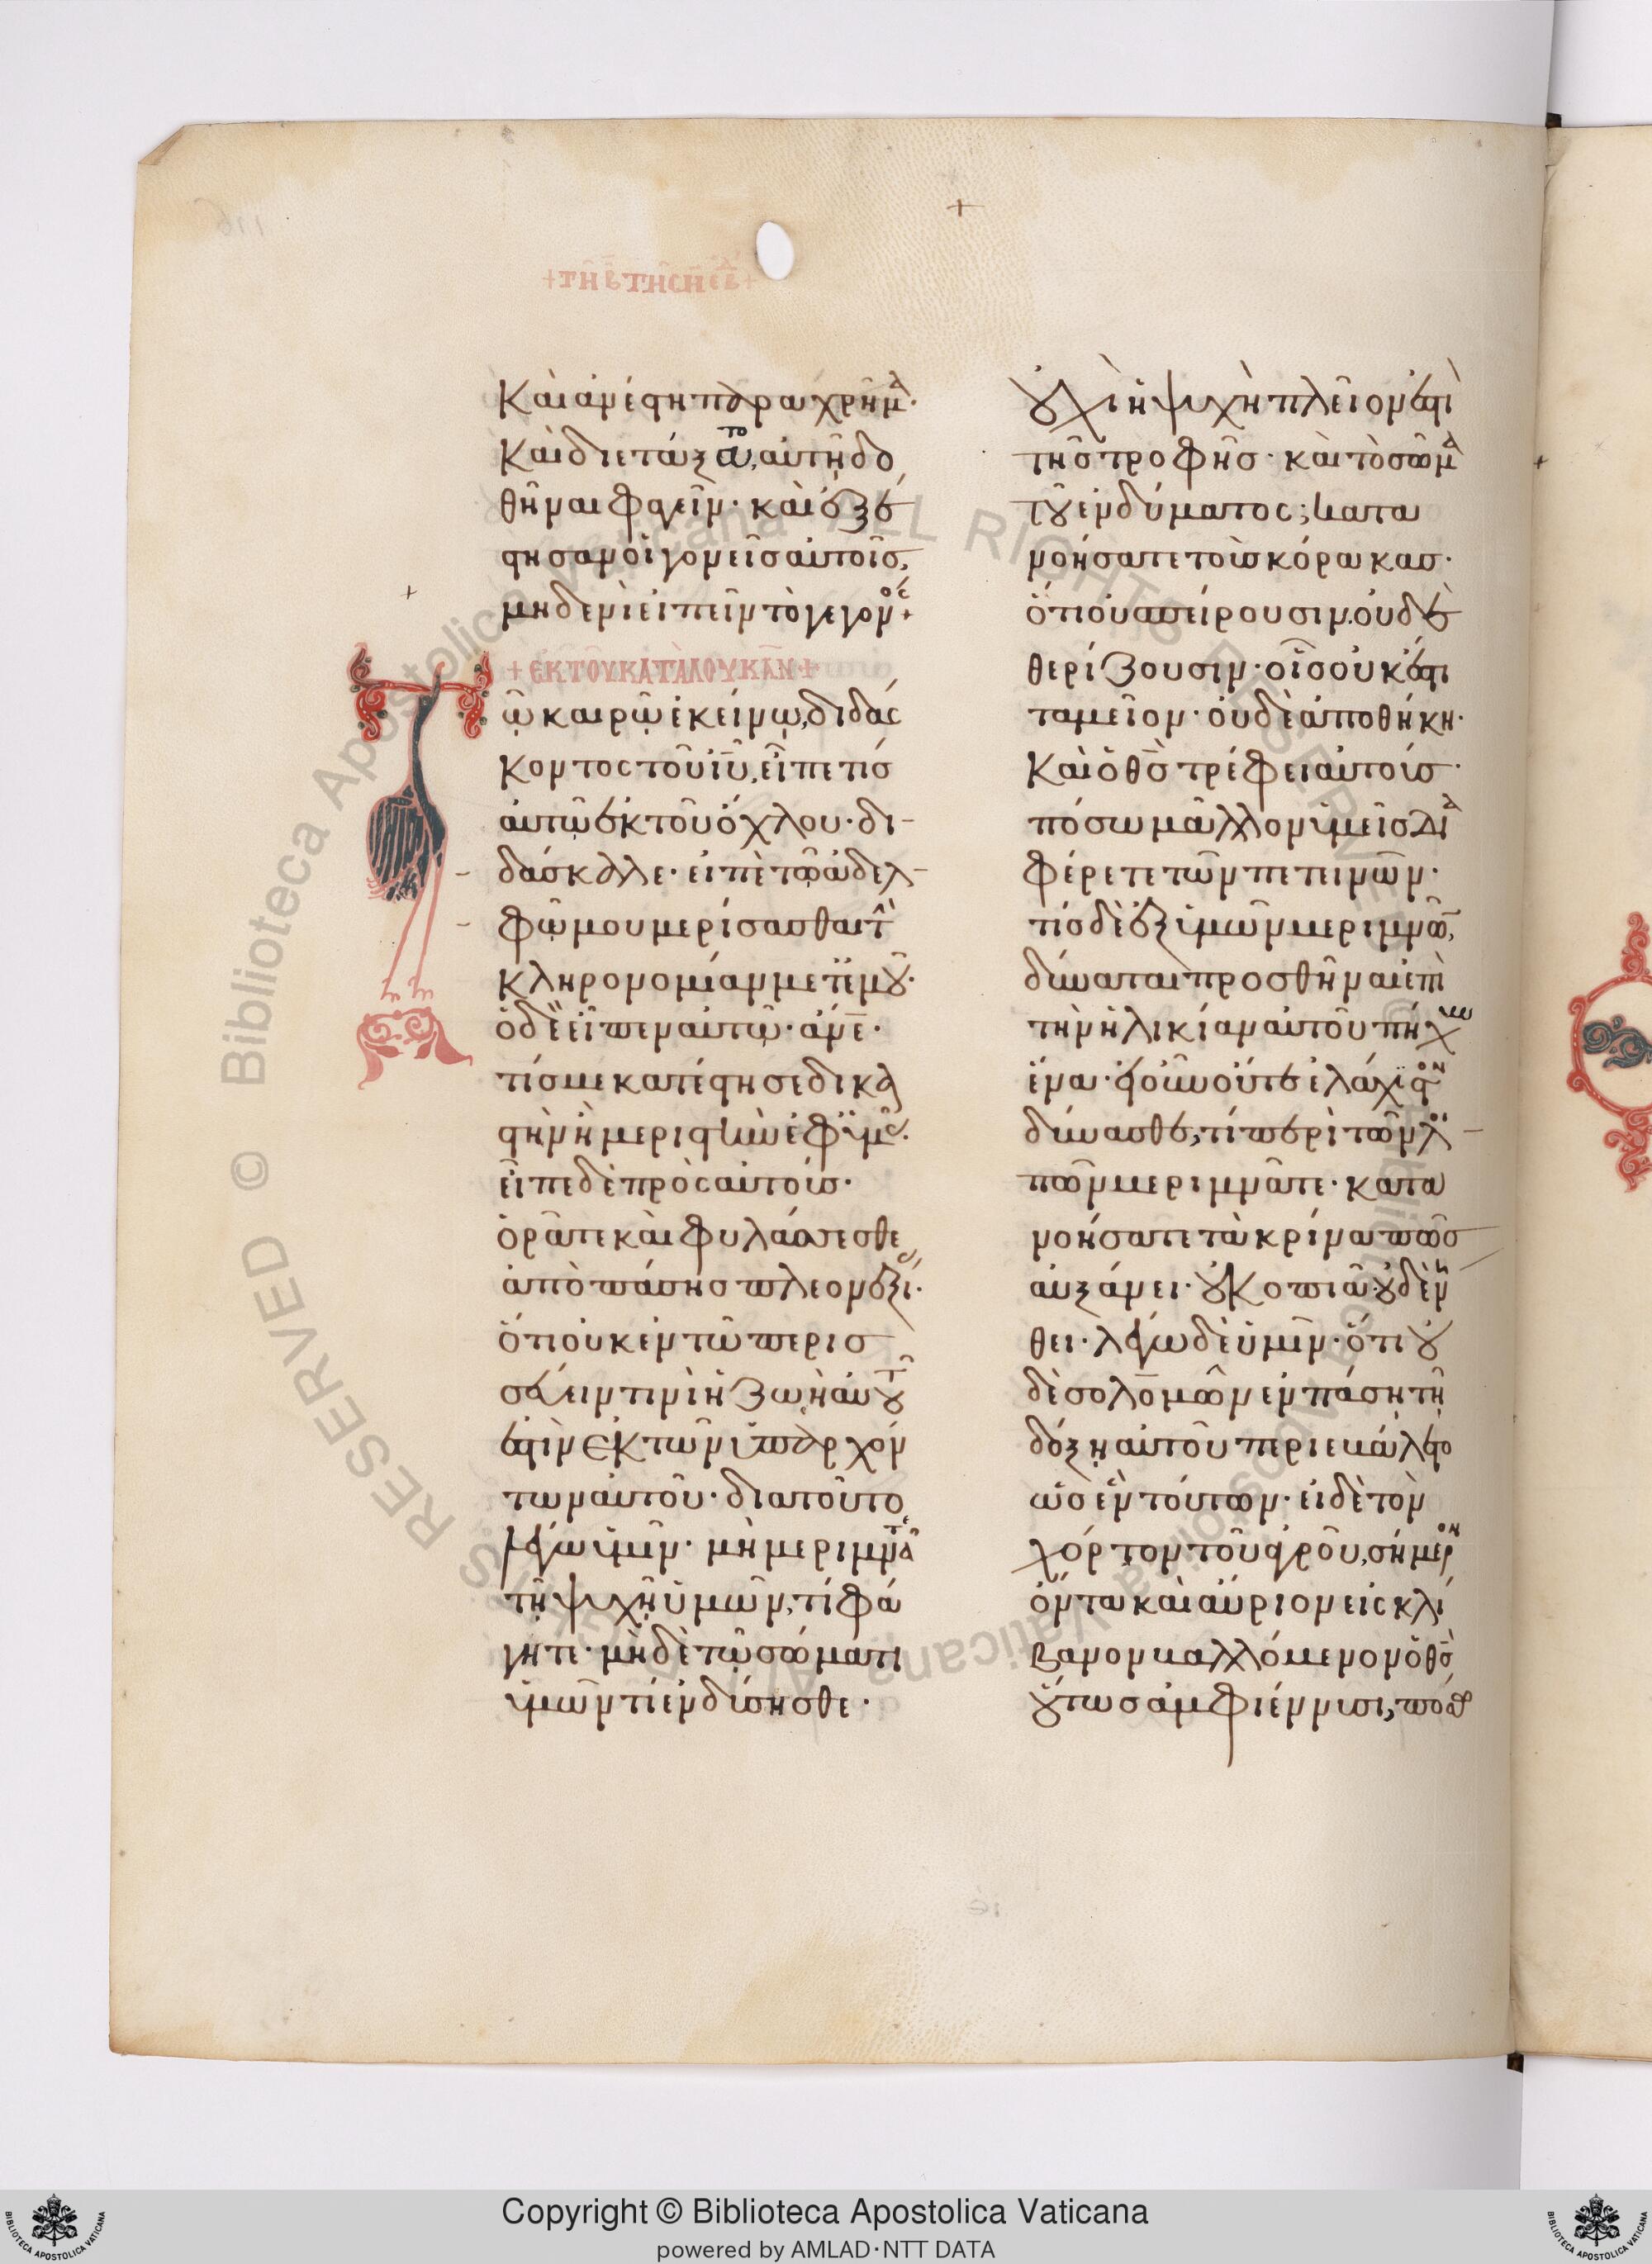 +ΤΗ Β ΤΗC Η ΕΒΔ+
Καὶ ἀνέστη παραχρῆμα·
καὶ διέταξεν αὐτῆ δο
θῆναι φαγεῖν· καὶ ἐξέ
στησαν οἱ γονεῖσ αὐτοῖσ,
μηδενὶ εἰπεῖν τὸ γεγονός+
+ΕΚ ΤΟΥ ΚΑΤΑ ΛΟΥΚΑΝ+
Τῶ καιρῶ ἐκείνω, διδάς
κοντος τοῦ ιυ, εἶπε τίσ
αὐτῶ ἐκ τοῦ ὄχλου· δι
δάσκαλε· εἰπὲ τῶ ἀδελ
φῶ μου μερίσασθαι τὴν
κληρονομίαν μετ' ἐμοῦ·
ὁ δὲ εἶπεν αὐτῶ· ἄνε·
τίσ με κατέστησε δικα
στὴν ἢ μεριστὴν ἐφ' ὑμᾶς·
εἶπε δὲ πρὸς αὐτούσ·
ὁρᾶτε καὶ φυλάσσεσθε
ἀπὸ πάσησ πλεονεξίας·
ὅτι οὐκ ἐν τῶ περισ
σεύειν τινὶ ἡ ζωὴ αὐτοῦ
ἐστὶν ἐκ τῶν ὑπαρχόν
των αὐτοῦ· διατοῦτο
λέγω ὑμῖν· μὴ μεριμνᾶτε
τῆ ψυχῆ ὑμῶν, τί φά
γητε· μηδὲ τῶ σώματι
ὑμῶν τί ἐνδύσησθε·
οὐχὶ ἡ ψυχὴ πλεῖον ἐστὶ
τῆσ τροφῆσ· καὶ τὸ σῶμα
τοῦ ἐνδύματος; κατα
νοήσατε τοὺσ κόρακασ·
ὅτι οὐ σπείρουσιν· οὐδὲ
θερίζουσιν· οἷσ οὐκ ἔστι
ταμεῖον· οὐδὲ ἀποθήκη·
καὶ ὁ θσ τρέφει αὐτούσ·
πόσω μᾶλλον ὑμεῖσ δια
φέρετε τῶν πετεινῶν·
τίσ δὲ ἐξ ὑμῶν μεριμνῶν,
δύναται προσθῆναι ἐπὶ
τὴν ἡλικίαν αὐτοῦ πῆχυν
ἕνα· εἰ οὖν οὔτε ἐλάχιστον
δύνασθε, τί περὶ τῶν λοι
πῶν μεριμνᾶτε· κατα
νοήσατε τὰ κρίνα πῶσ
αὐξάνει· οὐ κοπιᾶ· οὐδὲ νή
θει· λέγω δὲ ὑμῖν· ὅτι οὐ
δὲ σολομῶν ἐν πάση τῆ
δόξη αὐτοῦ περιεβάλετο
ὡσ ἓν τούτων· εἰ δὲ τὸν
χόρτον τοῦ ἀγροῦ, σήμερον
ὄντα καὶ αὔριον εἰς κλί
βανον βαλλόμενον ὁ θσ
οὕτωσ ἀμφιέννυσι, πόσω